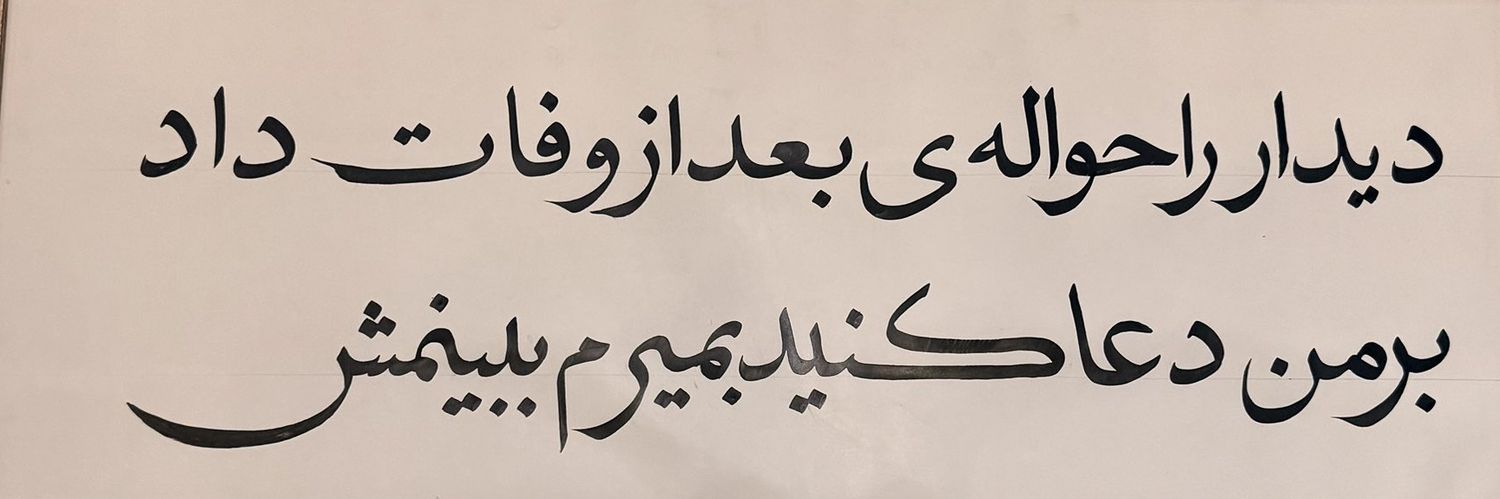 دیدار را حواله‌ی بعد از وفات داد
بر من دعا کنید بمیرم ببینمش